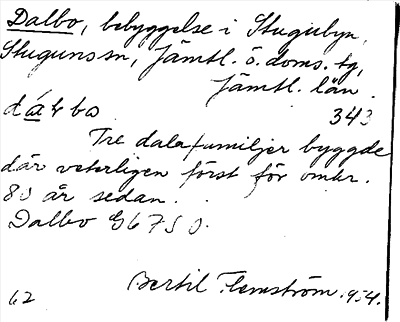 Dalbo, bebyggelse i Stugubyn,
Stuguns sn, Jämtl. ö. doms. tg,
Jämtl. län.
343
Tre dalafamiljer byggde
där veterligen först för omkr.
80 år sedan.
Dalbo G6750.
Bertil Flemström. 1954.
62